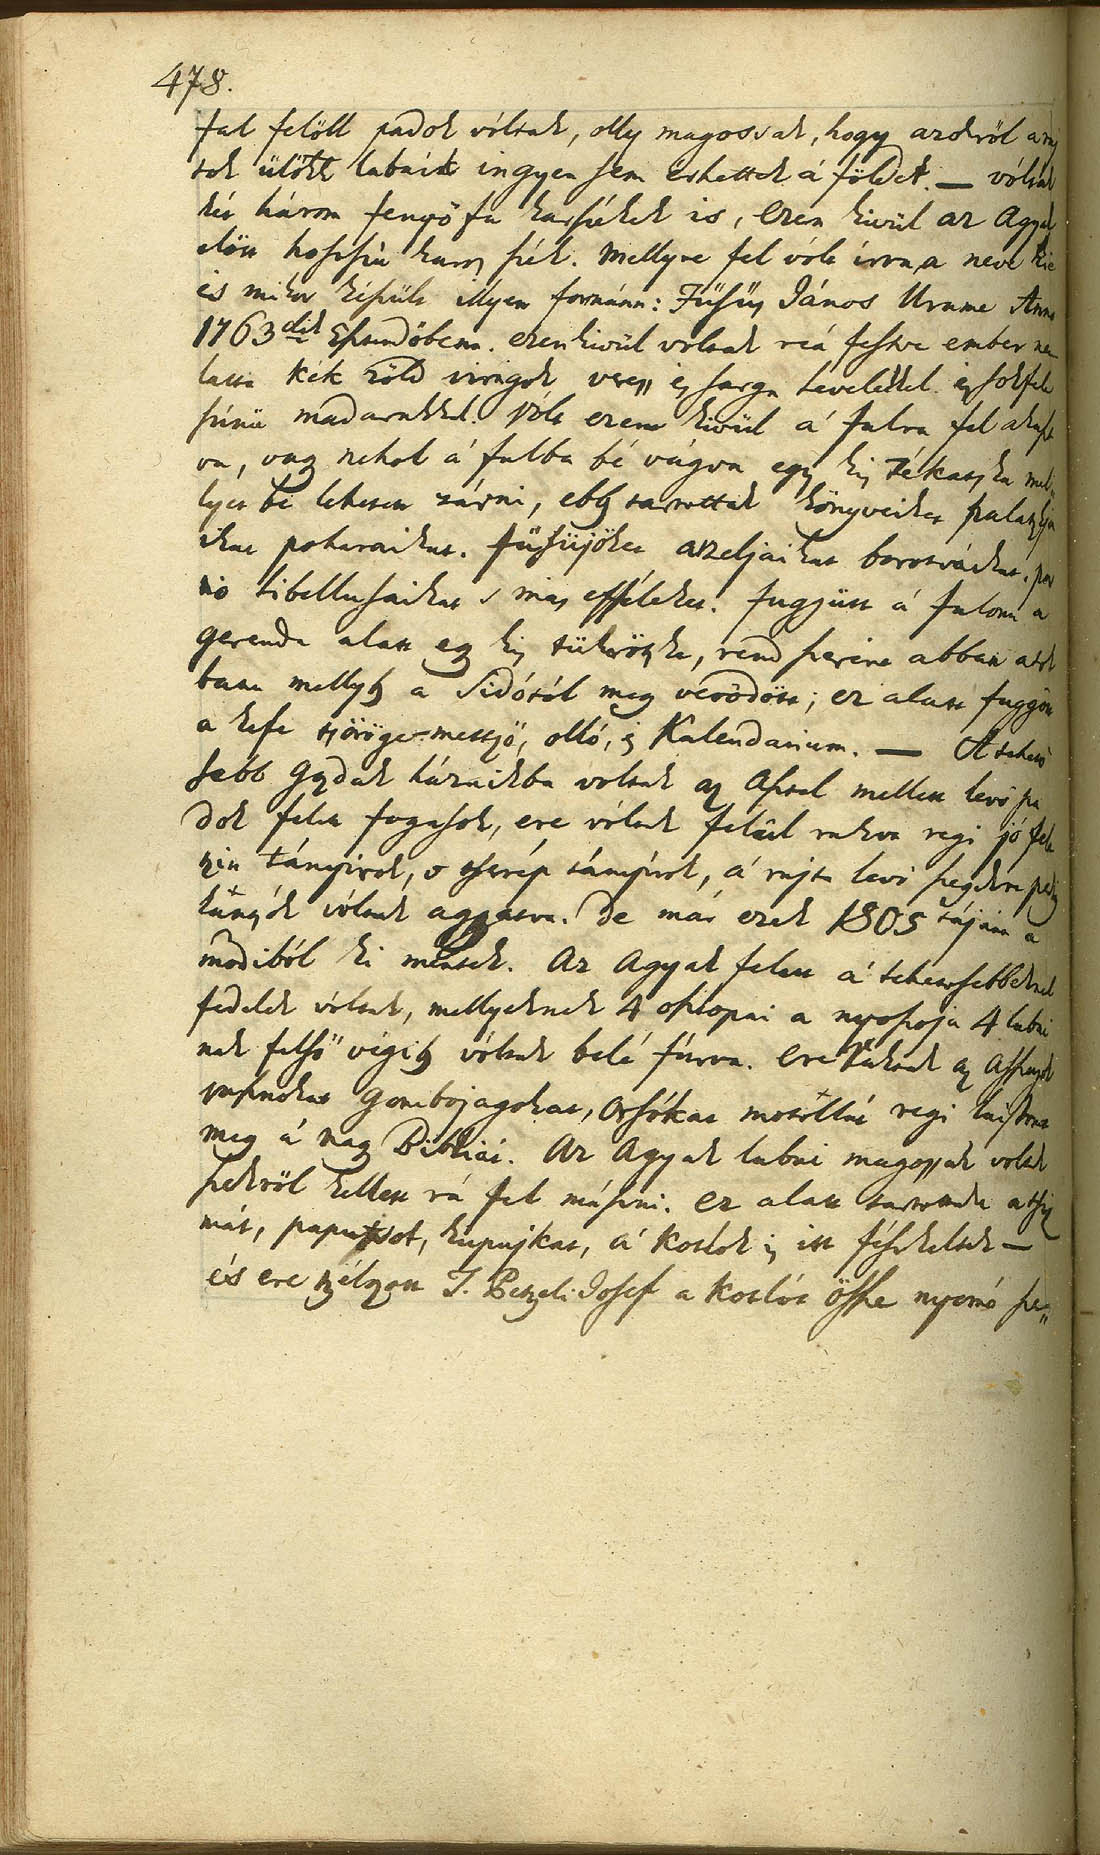 478.
fal felöll padok vóltak, olly magossak, hogy azokról a raj
tok ülökk labaik ingyen sem érhettek á földet. — vóltak
két három fenyö fa karszékek is, ezen kivül az Agyak
elött hosszú karos szék. mellyre fel vólt írva, a neve kié
és mikor készült illyen formánn: Füsüs János Uramé Anno
1763dik Esztendöbenn. ezenkivül voltak reá festve ember nem
latta kék zöld virágok veres és sarga levelekkel és sokfele
színü madarakkal. Vólt ezenn kivül á falra fel akaszt
va, vagy nehol á falba bé vágva egy kis Tékatska mel„
lyet bé lehetett zárni, ebb tartottak könyveiket palatzkja
ikat poharaikat. füsüjöket atzeljaikat borotváikat,
libellusaikat s más effeléket. függött á falonn a
gerenda alatt egy kis tükrötske, rend szerint abban
bann mellyb a Sidótól meg vevödött; ez alatt függött
a kefe szöröge-messzö, olló, és Kalendarium. — A tehetö
sebb Gazdák házaikba voltak az Asztal mellett levö pa
dok felett fogasok, ere vóltak felül rakva regi jó fele
tzin Tányirok, s tserép tányirok, á rajta levö szegekre pedig
kantsók vóltak aggatva. De már ezek 1805 táján a
módiból ki mentek. Az Agyak felett á tehetössebbeknél
fedelek vóltak, mellyeknek 4 oszlopai a nyoszoja 4 labai
nak felsö végib vóltak belé fúrva. ere raktak az Asszonyok
Gombojagokat, Orsókat motollát regi
meg á nagy Bibliát. Az Agyak labai magossak voltak
székröl kellett rá fel mászni. ez alatt tartották a tsiz
mát, paputsot, kupujkat, á kotlók is itt fészkeltek —
és ere tzélzott J. Petzeli Josef a kotlós össze nyomó sze„